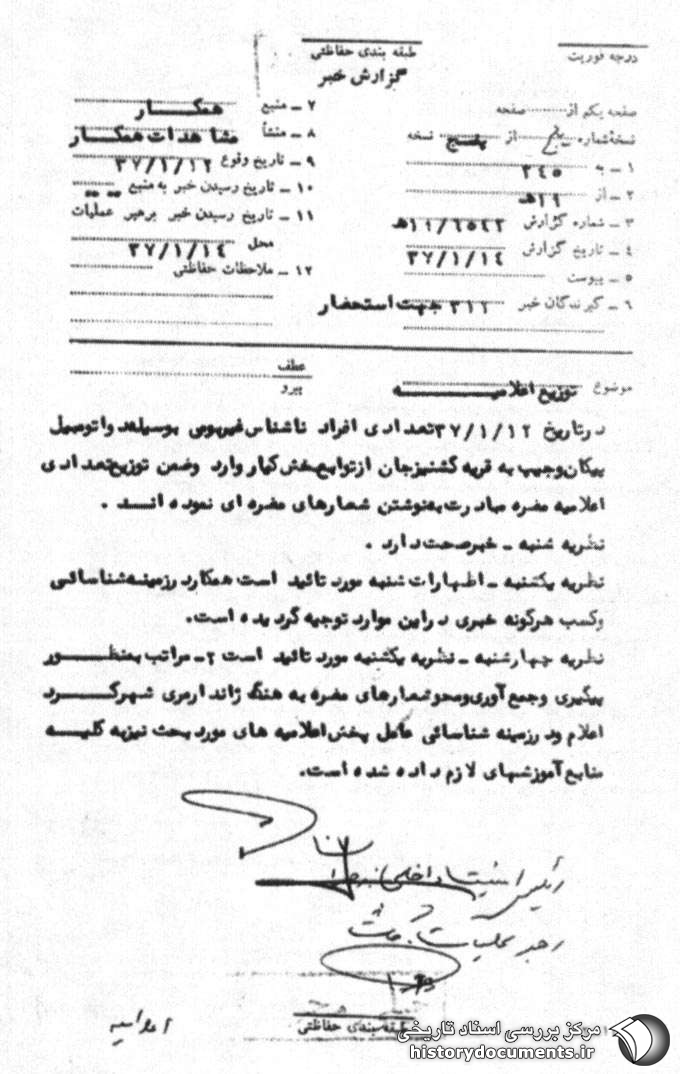 طبقه بندی حفاظتی
درجه فوریت
گزارش خبر
صفحه یکم از صفحه
نسخهٔ شماره از پنج نسخه
۱ ــ به ۳٤٥
۲ ــ از ۱۹هـ
۳ ــ شماره گزارش ۱۹/٦٥٤۲هـ
٤ ــ تاریخ گزارش ۳۷/۱/۱٤
٥ ــ پیوست
٦ ــ گیرندگان خبر ۳۱۲ جهت استحضار
۷ ــ منبع همکــــار
۸ ــ منشأ مشاهدات همکــار
۹ ــ تاریخ وقوع ۳۷/۱/۱۲
۱۰ ــ تاریخ رسیدن خبر به منبع
۱۱ ــ تاریخ رسیدن خبر برهبر عملیات
محل ۳۷/۱/۱٤
۱۲ ــ ملاحظات حفاظتی
عطف
پیرو
موضوع توزیع اعلامیــــــــه
درتاریخ ۳۷/۱/۱۲ تعدادی افراد ناشناس غیربومی بوسیله دواتومبیل
پیکان وجیپ به قریه گشنیزجان ازتوابع بخش کیار وارد وضمن توزیع تعدادی
اعلامیه مضره مبادرت به نوشتن شعارهای مضره ای نموده انــد .
نظریه شنبه ــ خبرصحت دارد .
نظریه یکشنبه ــ اظهارات شنبه مورد تائید است همکار درزمینه شناسائی
وکسب هرگونه خبری دراین موارد توجیه گردیده است.
نظریه چهارشنبه ــ نظریه یکشنبه مورد تائید است ۲ــ مراتب بمنظــــور
پیگیری وجمع آوری ومحو شعارهای مضره به هنگ ژاندارمری شهرکــــرد
اعلام ودرزمینه شناسائی عامل پخش اعلامیه های مورد بحث نیزبه کلیــه
منابع آموزشهای لازم داده شده است.
رئیس امنیت داخلی
رهبر عملیات
طبقه بندی حفاظتی
اعلامیه
مرکز بررسی اسناد تاریخی
historydocuments.ir